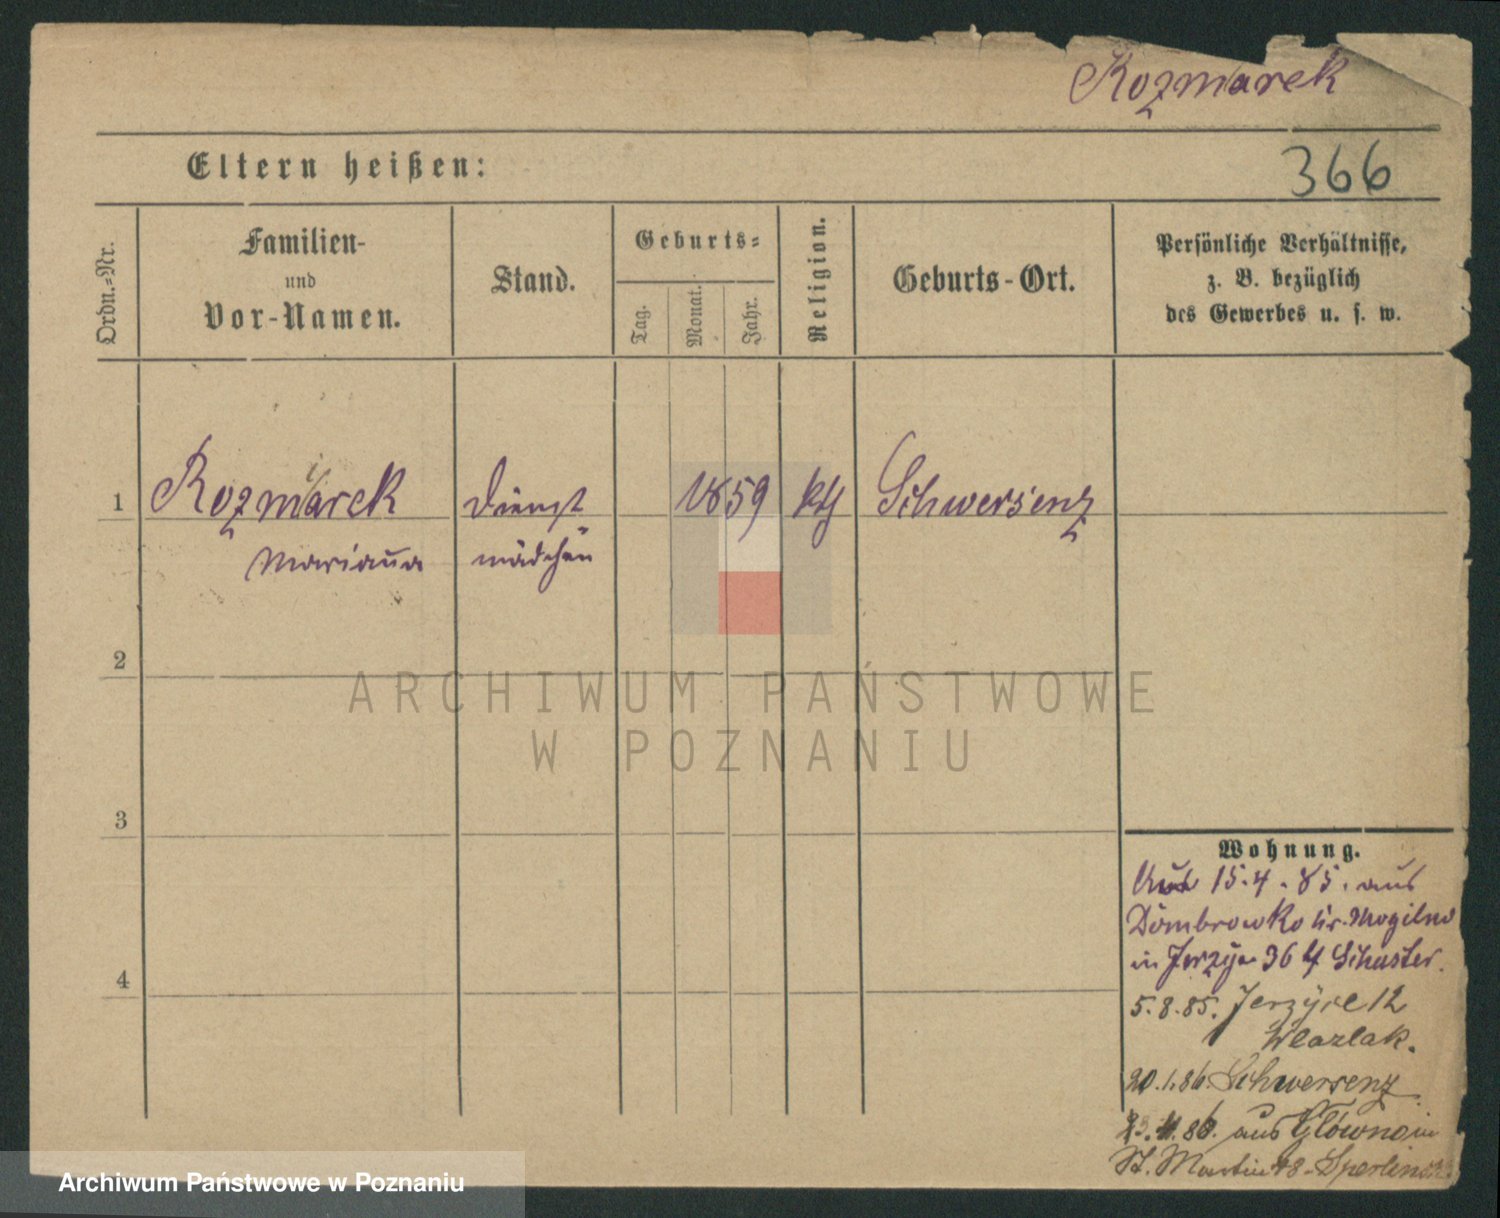 Rozmarek
Eltern heißen:
366
Ordn.-Nr.
Familien-
und
Vor-Namen.
Stand.
Geburts-
Tag.
Monat.
Jahr.
Religion.
Geburts-Ort.
Persönliche Verhältnisse,
z. B. bezüglich
des Gewerbes u. s. w.
1
Rozmarek
Marianna
Dienst
mädchen
1859
kth
Schwersenz
2
3
4
Wohnung.
15.4.85. aus
Dombrowko Kr. Mogilno
in Jerzyce 36 Schuster.
5.8.85. Jerzyce 12
Wlazlak.
20.1.86. Schwersenz
aus Główno in
St. Martin 48
ARCHIWUM PAŃSTWOWE
W POZNANIU
Archiwum Państwowe w Poznaniu